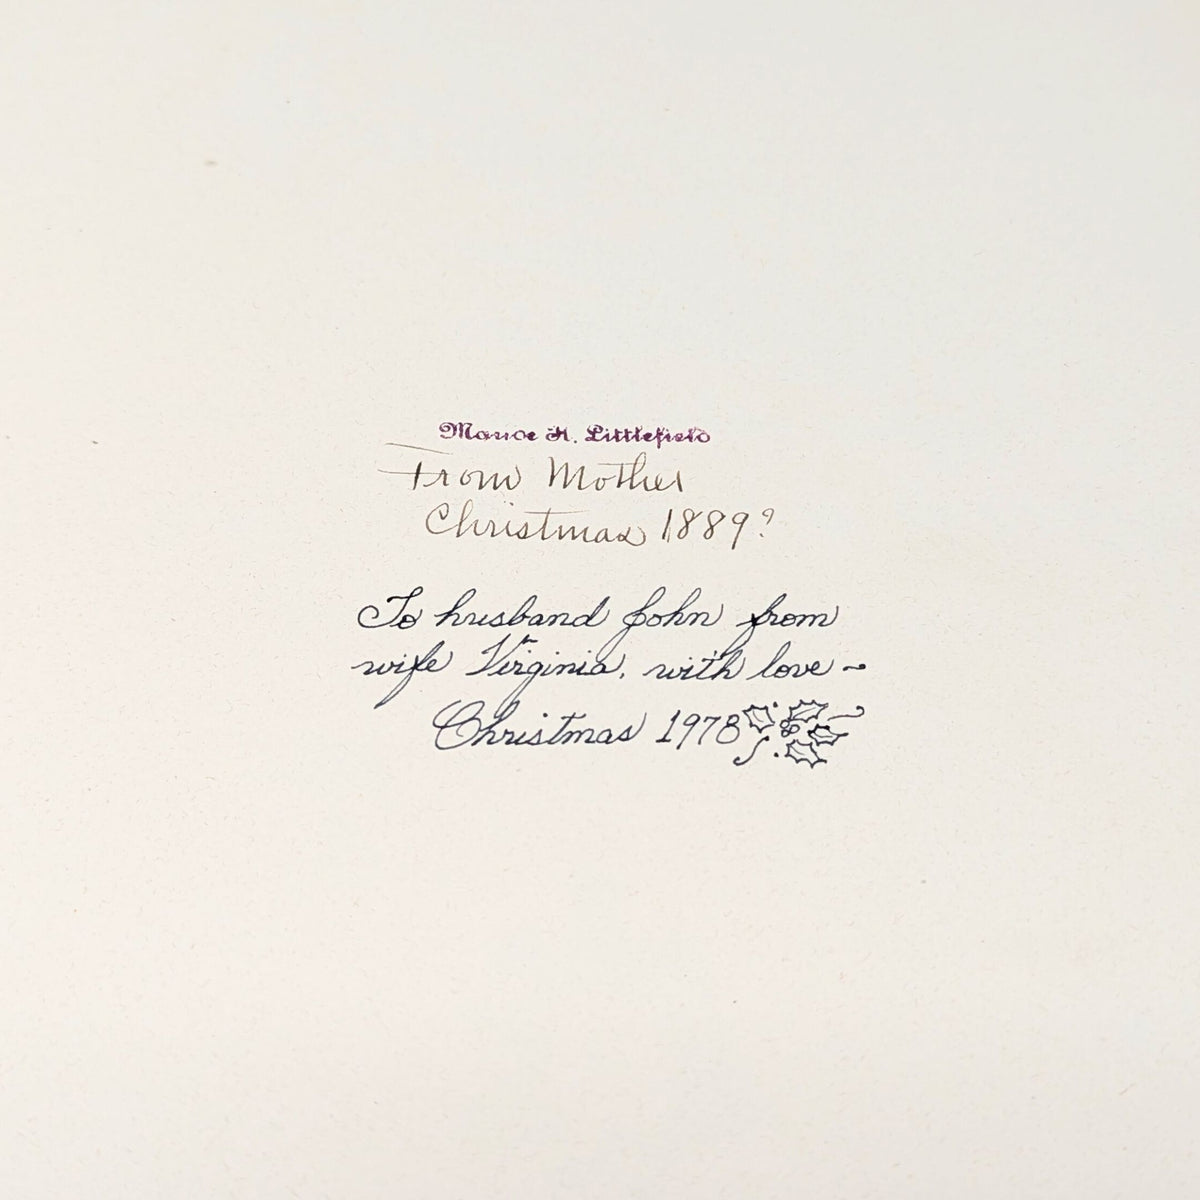 H. Littlefield
From Mother
Christmas 1889?
To husband John from
wife Virginia, with love ~
Christmas 1978